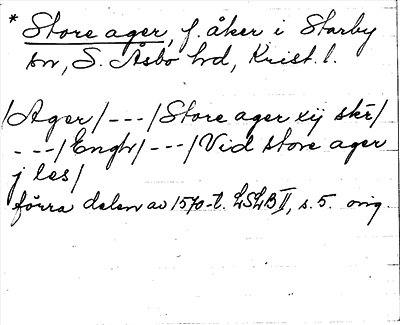 * Store ager, f. åker i Starby
sn, S. Åsbo hd, Krist. l.
/Ager/ --- /Store ager xij skr/
---/Engh/ --- /Vid store ager
j les/
förra delen av 1570-t. LSLB II, s. 5. orig.